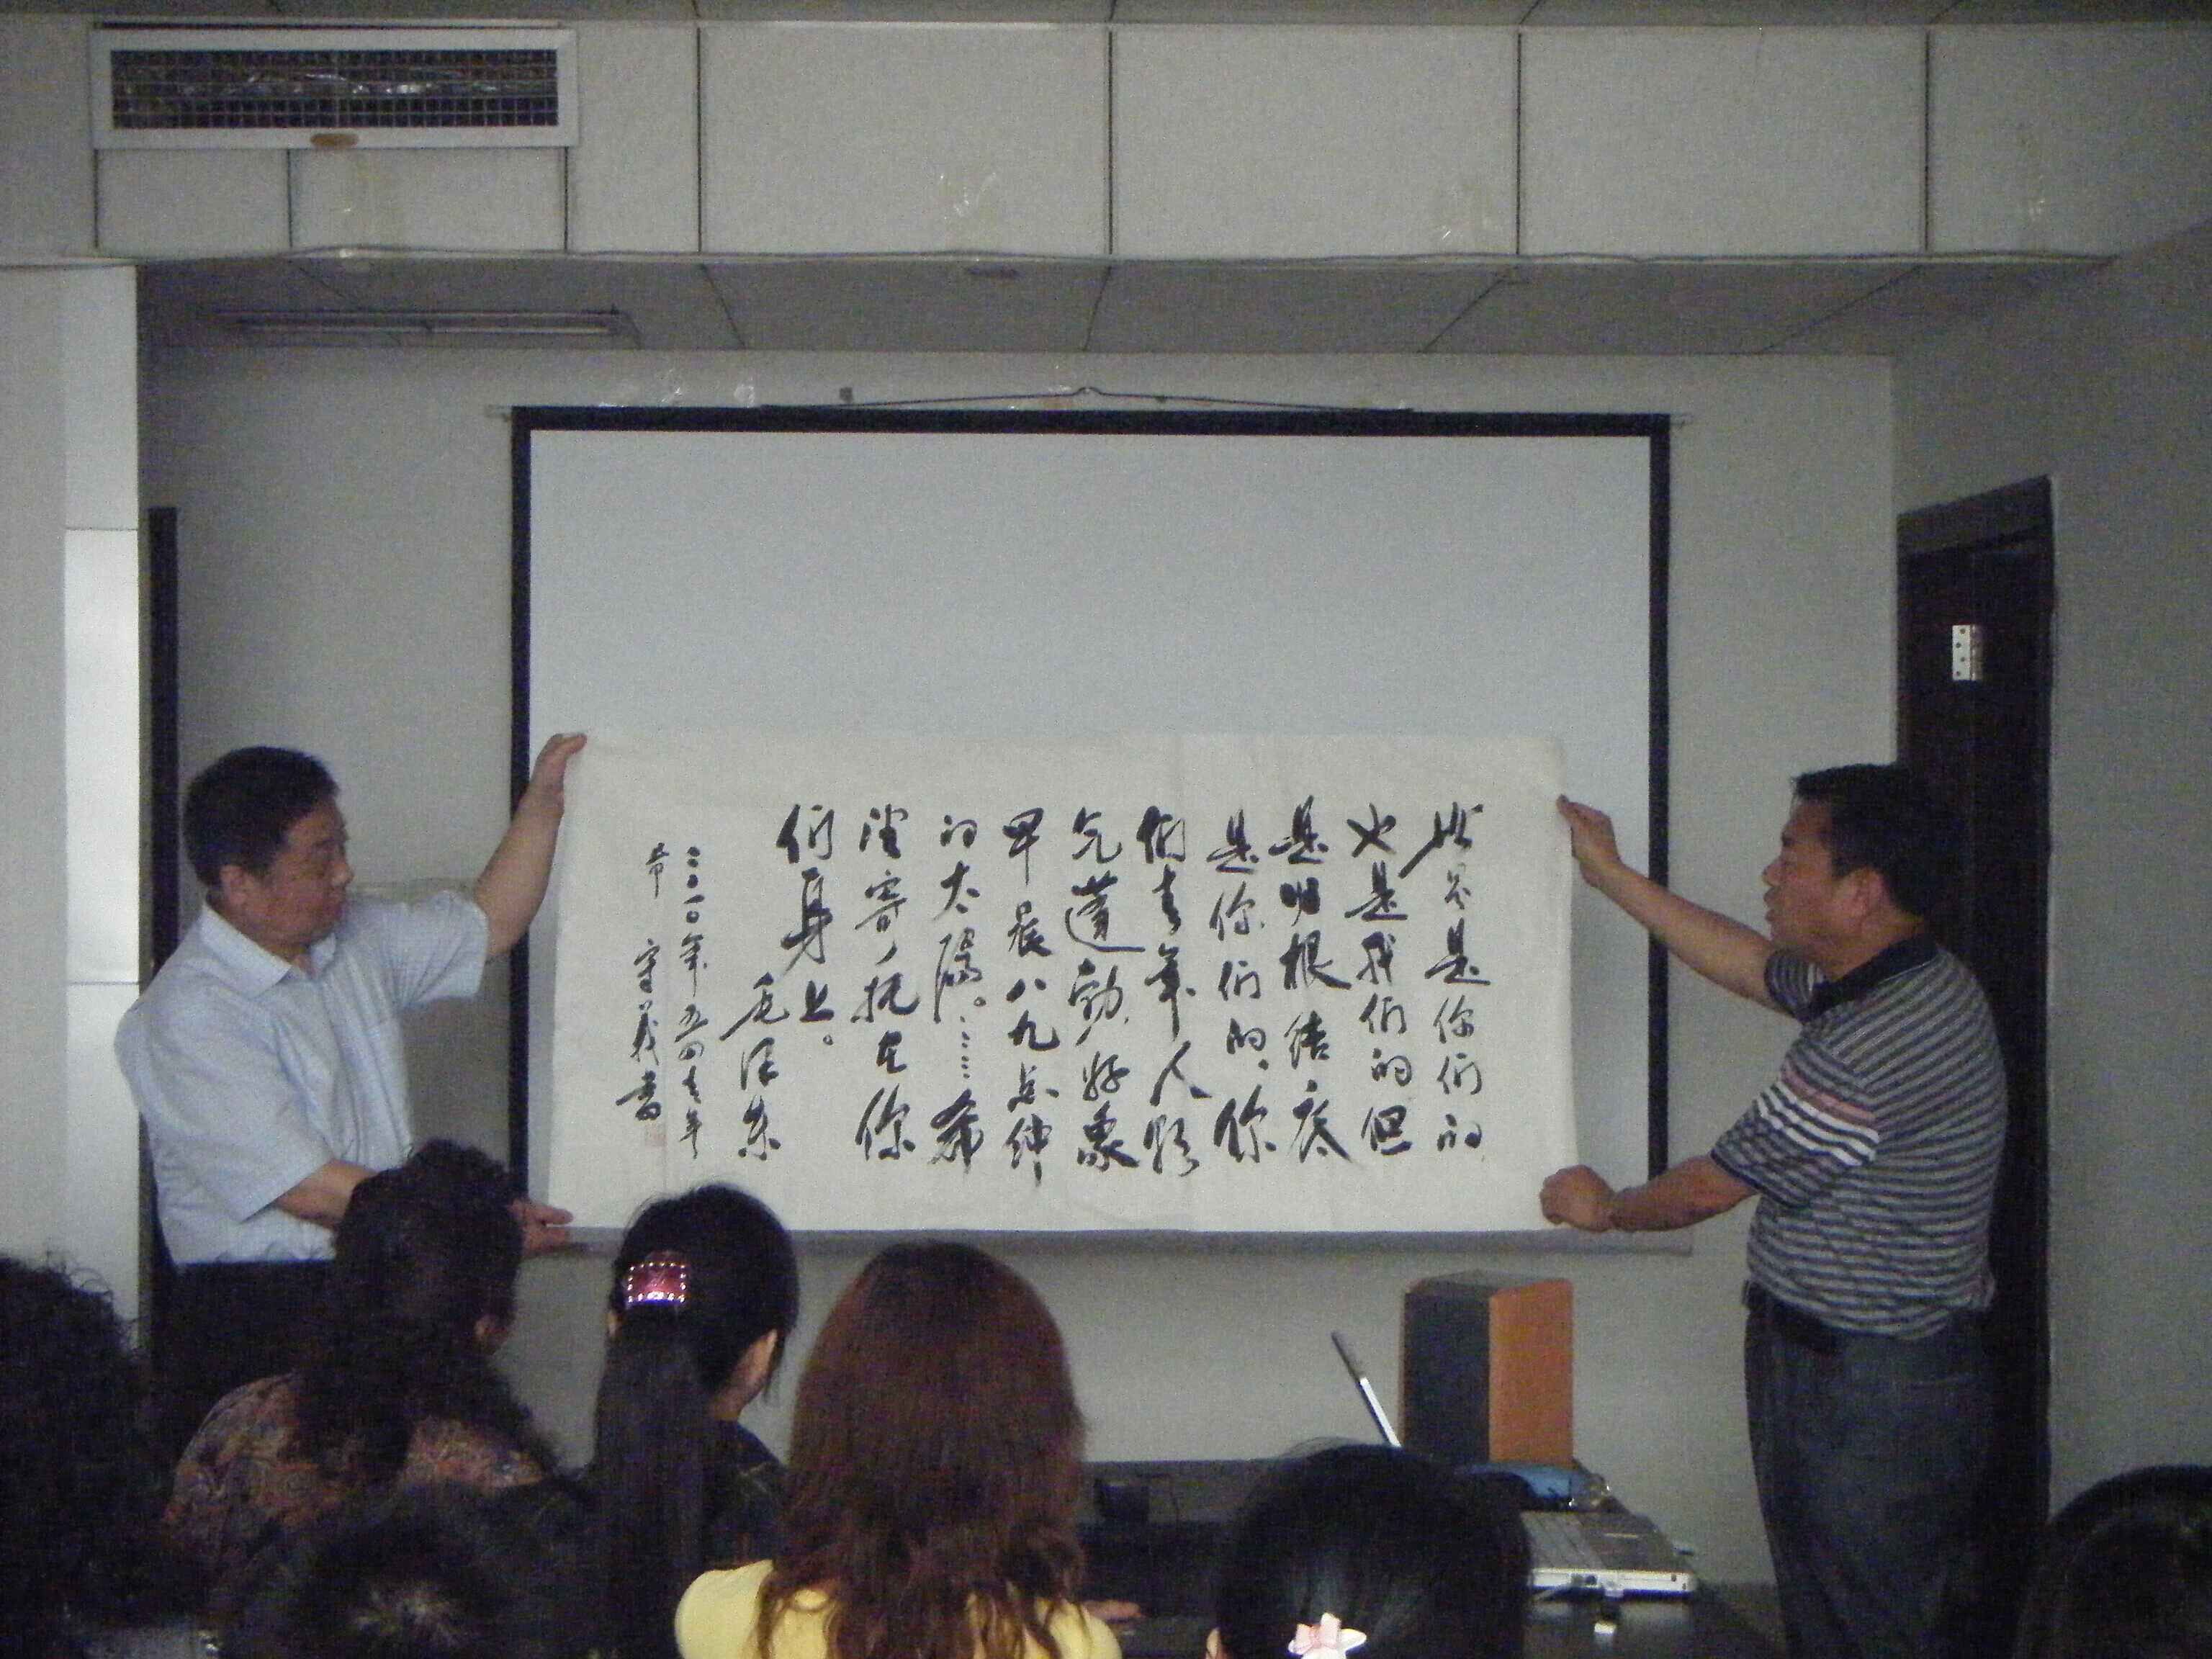 世界是你们的
也是我们的但
是归根结底
是你们的。你
们青年人朝
气蓬勃,好象
早晨八九点钟
的太阳。……希
望寄托在你
们身上。
毛泽东
二〇一〇年五四青年
节 守义书